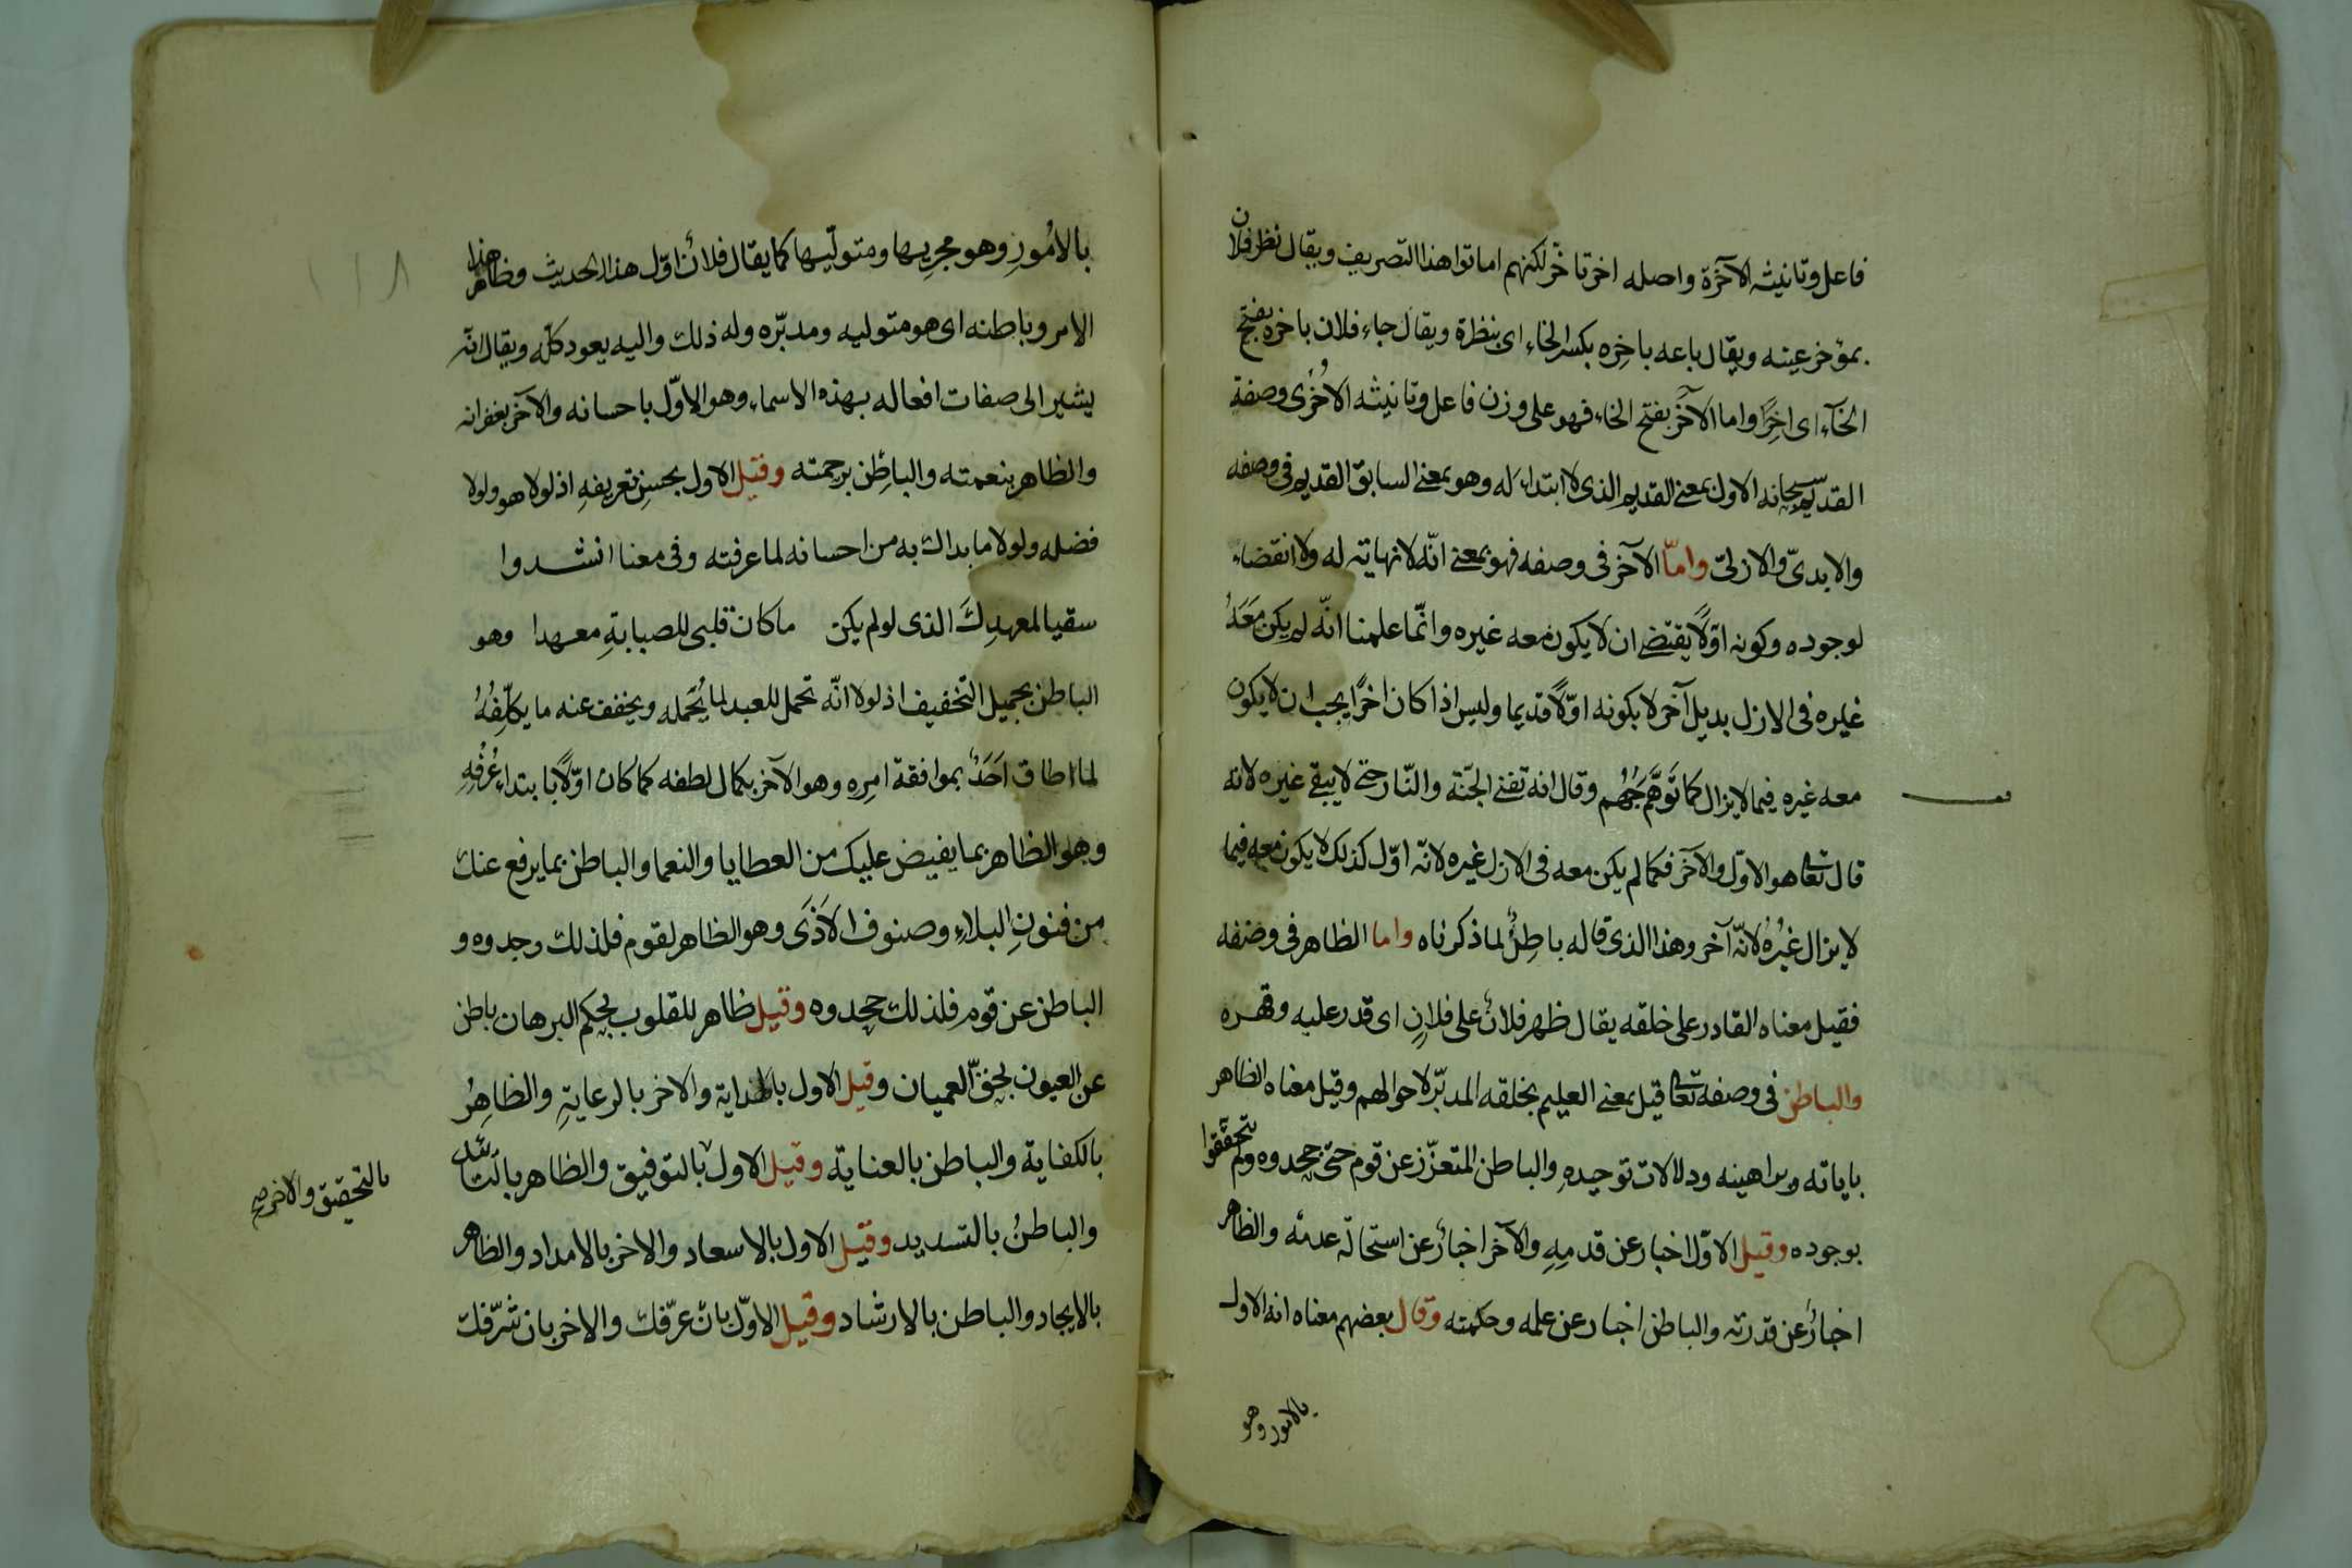 فاعل وتانيثه الآخرة واصله اخر تاخر لكنهم اماتوا هذا التصريف ويقال نظر فلان
بمؤخر عينه ويقال باعه باخِره بكسر الخاء اى بنظرة ويقال جاء فلان باخره بفتح
الخآء اى اخِرًا واما الآخَر بفتح الخاء فهو على وزن فاعل وتانيثه الاُخرٰى وصفة
القديم سبحانه الاول بمعنى القديم الذى لا ابتداء له وهو بمعنى السابق القديم فى وصفه
والابدىّ والازلىّ وامّا الآخر فى وصفه فهو بمعنى انّه لا نهاية له ولا انقضاء
لوجوده وكونه اوّلًا يقتضى ان لا يكون معه غيره وانّما علمنا انّه لم يكن مَعَهُ
غيره فى الازل بديل آخر لا بكونه اوّلًا قديما وليس اذا كان اخرًا يجب ان لا يكون
معه غيره فيما لا يزال كما تَوَهَّم جُهُم وقال انه تفنى الجنّة والنّار حتى لا يبقى غيره لانه
قال تعا هو الاوّل والآخر فكما لم يكن معه فى الازل غيره لانّه اوّل كذلك لا يكون معه فيما
لا يزال غيرُهُ لانّه آخر وهذا الذى قاله باطِلٌ لما ذكرناه واما الظاهر فى وصفه
فقيل معناه القادر على خلقه يقال ظهر فلانٌ على فلانٍ اى قدر عليه وقهره
والباطن فى وصفه تعا قيل بمعنى العليم بخلقه المدبّر لاحوالهم وقيل معناه الظاهر
باياته وبراهينه ودلالات توحيدهِ والباطن المتعزّز عن قوم حتى جحدوه ولم يتحققوا
بوجوده وقيل الاوّل اخبار عن قدمِهِ والآخر اخبارٌ عن استحالة عدمه والظاهر
اخبارٌ عن قدرته والباطن اخبار عن علمه وحكمته وقال بعضهم معناه انه الاول
بالامور وهو
بالامُورِ وهو مجريها ومتوليّها كما يقال فلانٌ اوّل هذا الحديث وظاهر هذا
الامر وباطنه اى هو متوليه ومدبّره وله ذلك واليه يعود كلّه ويقال انّه
يشير الى صفات افعاله بهذه الاسماء وهو الاوّل باحسانه والآخر بغفرانه
والظاهر بنعمته والباطِن برحمته وقيل الاول بحسنِ تعريفهِ اذ لولا هو ولولا
فضله ولولا ما بداك به من احسانه لما عرفته وفى معنا انشدوا
سقيا لمعهدِكَ الذى لو لم يكن ما كان قلبى للصبابةِ معهدا وهو
الباطن بجميل التخفيف اذ لولا انّه تحمل للعبد لما يُحَمله ويخفف عنه ما يكلّفِهُ
لما اطاق اَحَدٌ بموافقة امِرِه وهو الآخر بكمال لطفه كما كان اوّلًا بابتداء عُرفِهِ
وهو الظاهر بما يفيض عليك من العطايا والنعما والباطن بما يرفع عنك
من فنونِ البلاءِ وصنوف الاَذَى وهو الظاهر لقوم فلذلك وجدوه و
الباطن عن قوم فلذلك جحدوه وقيل ظاهر للقلوب بحكم البرهان باطن
عن العيون بحقّ العميان وقيل الاول بالهداية والاخر بالرعايةِ والظاهِرُ
بالكفاية والباطن بالعناية وقيل الاول بالتوفيق والظاهر بالتائيد
بالتحقيق والاخر صح
والباطنُ بالتسديد وقيل الاول بالاسعاد والاخر بالامداد والظاهر
بالايجاد والباطن بالارشاد وقيل الاوّل بان عرّفك والاخر بان شرّفك